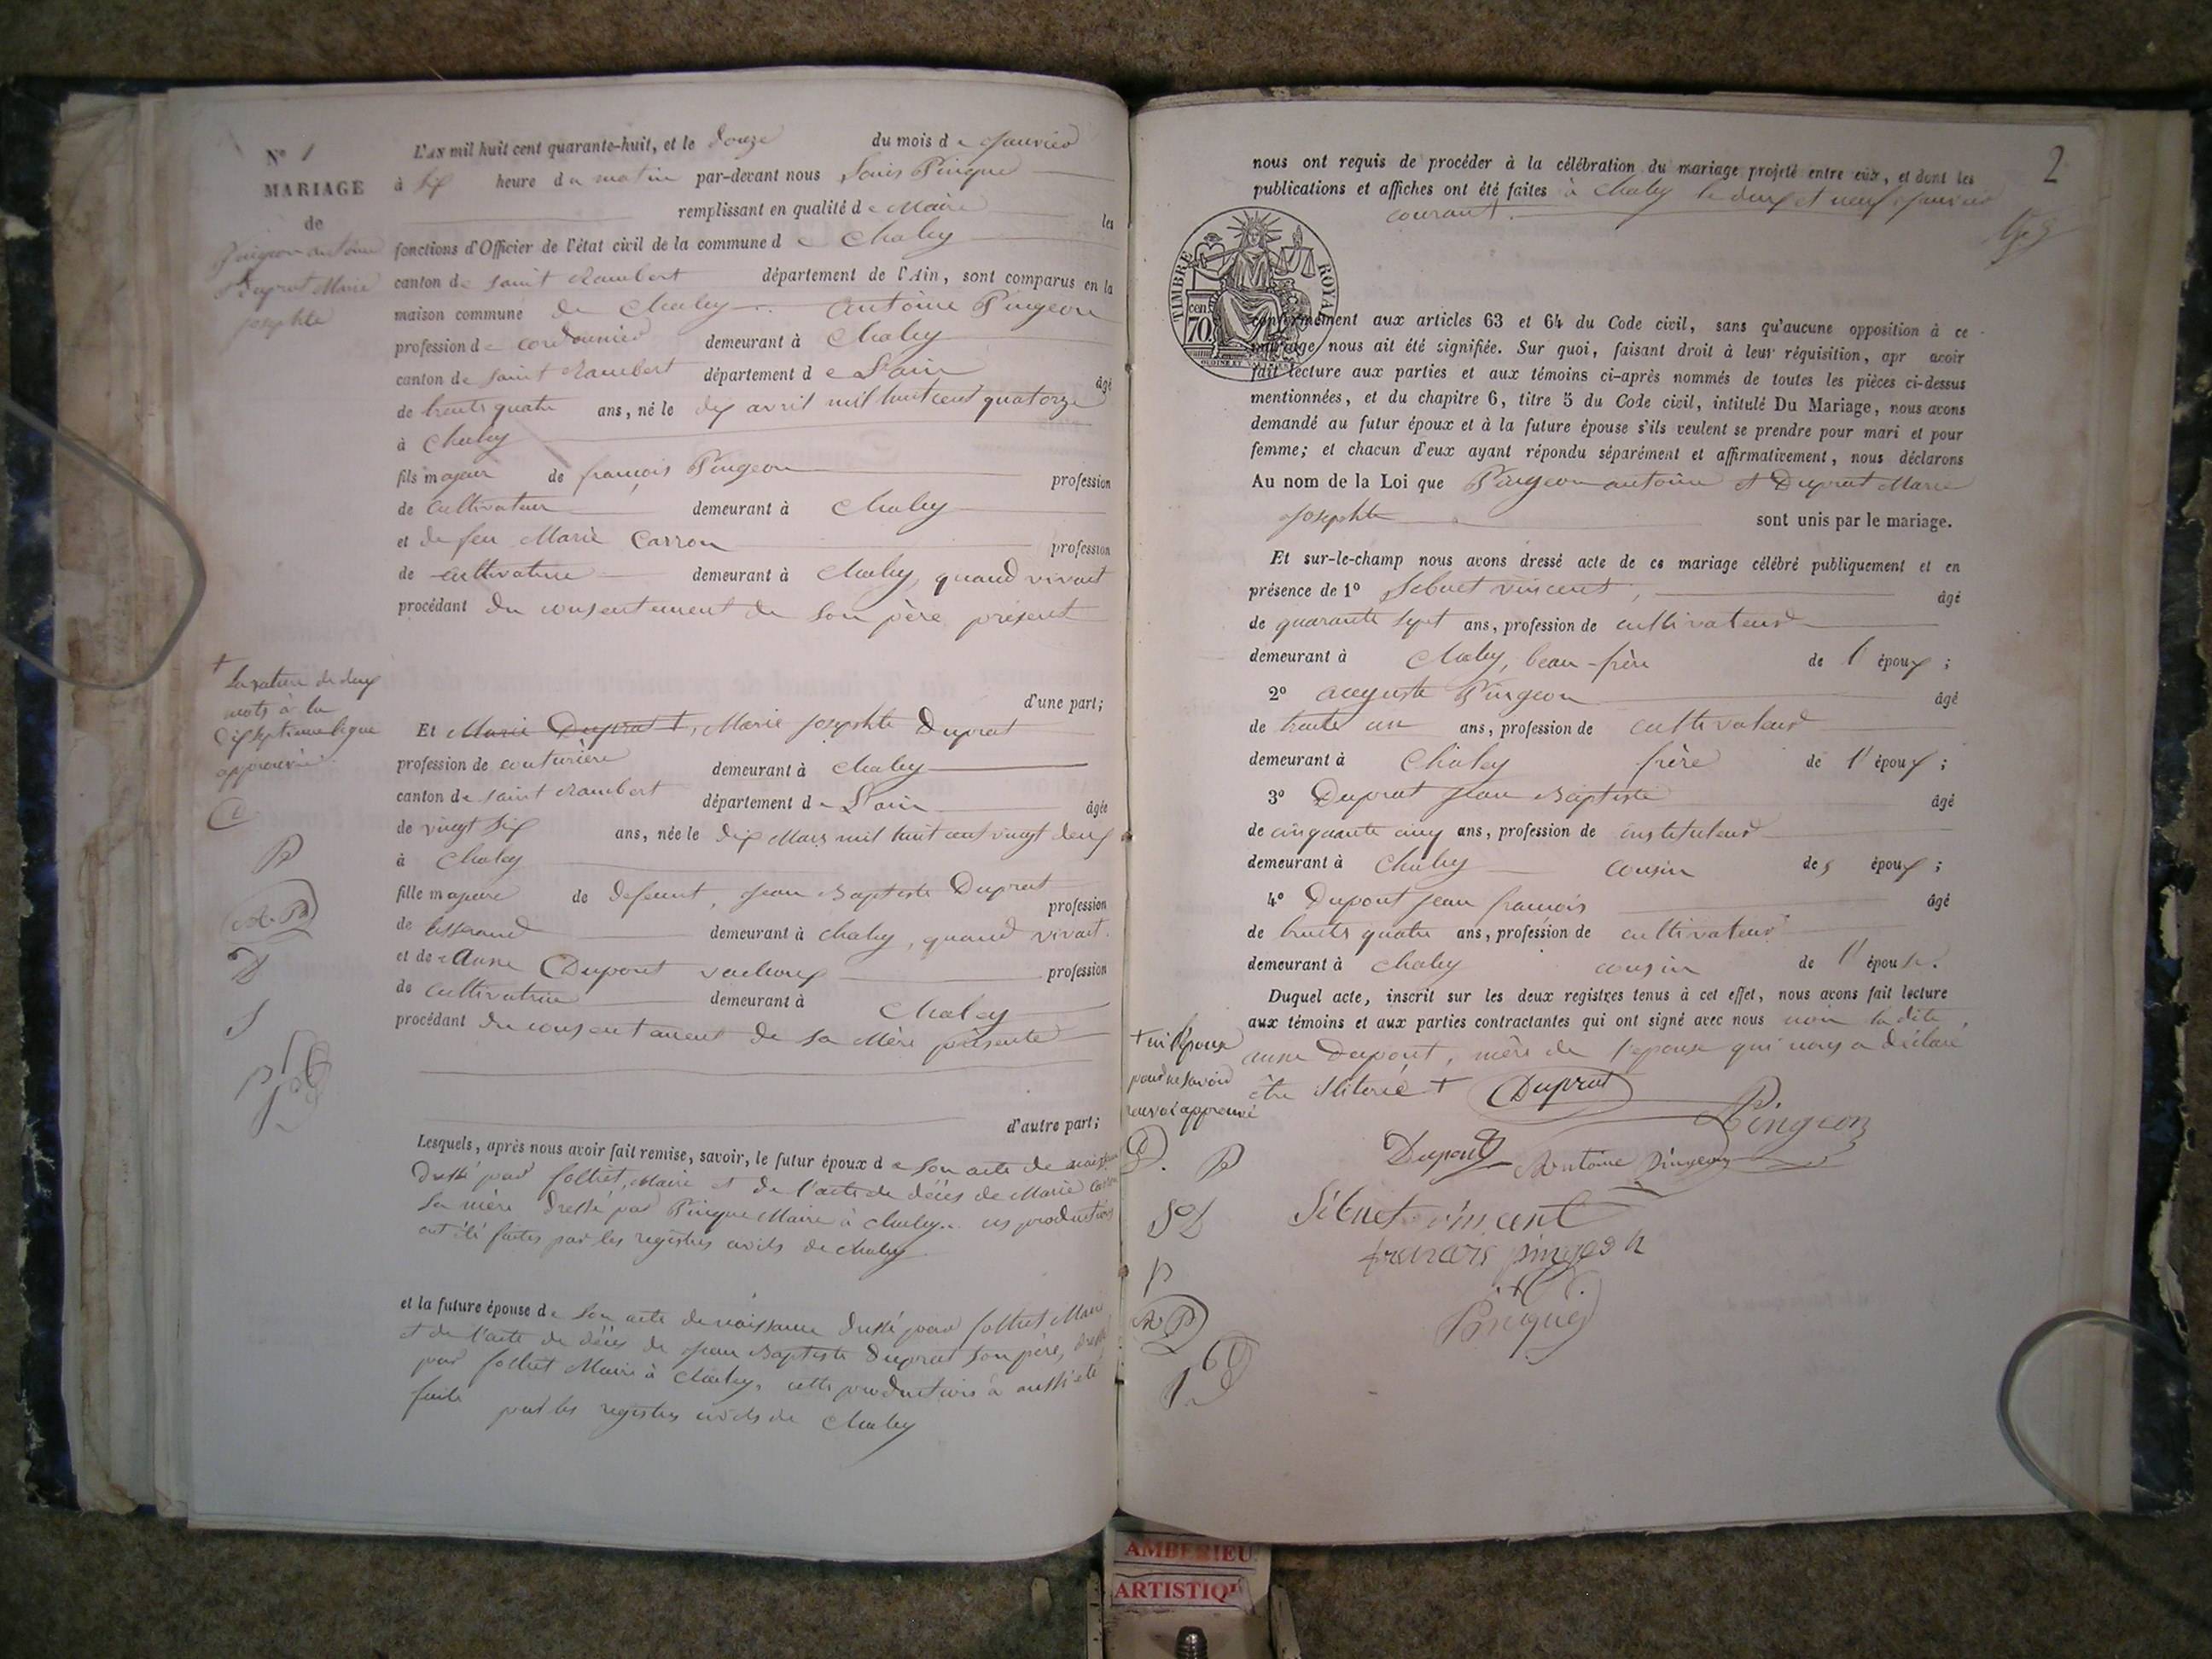 N° 1
MARIAGE
de
Pingeon antoine
Duprat Marie
josephte
L'AN mil huit cent quarante-huit, et le douze du mois de Janvier
à six heure du matin par-devant nous Louis Pingue
remplissant en qualité de Maire les
fonctions d'Officier de l'état civil de la commune de Chaley
canton de saint Rambert département de l'Ain, sont comparus en la
maison commune de Chaley Antoine Pingeon
profession de cordonnier demeurant à Chaley
canton de saint Rambert département de L'ain âgé
de trente quatre ans, né le dix avril mil huit cent quatorze
à Chaley
fils majeur de françois Pingeon profession
de cultivateur demeurant à Chaley
et de feu Marie Carron profession
de cultivatrice demeurant à Chaley, quand vivait
procédant du consentement de son père présent
d'une part;
+ La rature de deux
mots à la
dix septieme ligne
approuvée
Et Marie Duprat +, Marie josephte Duprat
profession de couturière demeurant à Chaley
canton de saint Rambert département de L'ain âgée
de vingt six ans, née le dix Mars mil huit cent vingt deux
à Chaley
fille majeure de defunt, Jean Baptiste Duprat profession
de tisserand demeurant à Chaley, quand vivait.
et de Anne Dupont profession
de cultivatrice demeurant à Chaley
procédant du consentement de sa Mère présente
d'autre part;
Lesquels, après nous avoir fait remise, savoir, le futur époux de son acte de naissance
dressé par follliet, Maire et de l'acte de décès de Marie Carron
sa mère dressé par Pingue Maire à Chaley.. ces productions
ont été faites par les registres civils de Chaley
et la future épouse de son acte de naissance dressé par folliet Maire
et de l'acte de décès de Jean Baptiste Duprat son père, dressé
par folliet Maire à Chaley, cette production à aussi été
faite par les registres civils de Chaley
2
nous ont requis de procéder à la célébration du mariage projeté entre eux, et dont les
publications et affiches ont été faites à Chaley le deux et neuf Janvier
courant.
TIMBRE ROYAL
70 cen
conformément aux articles 63 et 64 du Code civil, sans qu'aucune opposition à ce
mariage nous ait été signifiée. Sur quoi, faisant droit à leur réquisition, apr avoir
fait lecture aux parties et aux témoins ci-après nommés de toutes les pièces ci-dessus
mentionnées, et du chapitre 6, titre 5 du Code civil, intitulé Du Mariage, nous avons
demandé au futur époux et à la future épouse s'ils veulent se prendre pour mari et pour
femme; et chacun d'eux ayant répondu séparément et affirmativement, nous déclarons
Au nom de la Loi que Pingeon antoine et Duprat Marie
Josephte sont unis par le mariage.
Et sur-le-champ nous avons dressé acte de ce mariage célébré publiquement et en
présence de 1° Sibuet vincent, âgé
de quarante sept ans, profession de cultivateur
demeurant à Chaley, beau-frère de l'époux;
2° auguste Pingeon âgé
de trente un ans, profession de cultivateur
demeurant à Chaley frère de l'époux;
3° Duprat Jean Baptiste âgé
de cinquante cinq ans, profession de instituteur
demeurant à Chaley cousin des époux;
4° Dupont jean francois âgé
de trente quatre ans, profession de cultivateur
demeurant à Chaley cousin de l'épouse.
Duquel acte, inscrit sur les deux registres tenus à cet effet, nous avons fait lecture
aux témoins et aux parties contractantes qui ont signé avec nous non la dite
anne Dupont, mère de l'epouse qui nous a déclaré
être iliterée +
+ ni l'épouse
pour ne savoir
renvoi approuvé
Duprat
Pingeon
Dupont
Antoine Pingeon
Sibuet vincent
francois pingeon
Pingue
AMBERIEU
ARTISTIQU